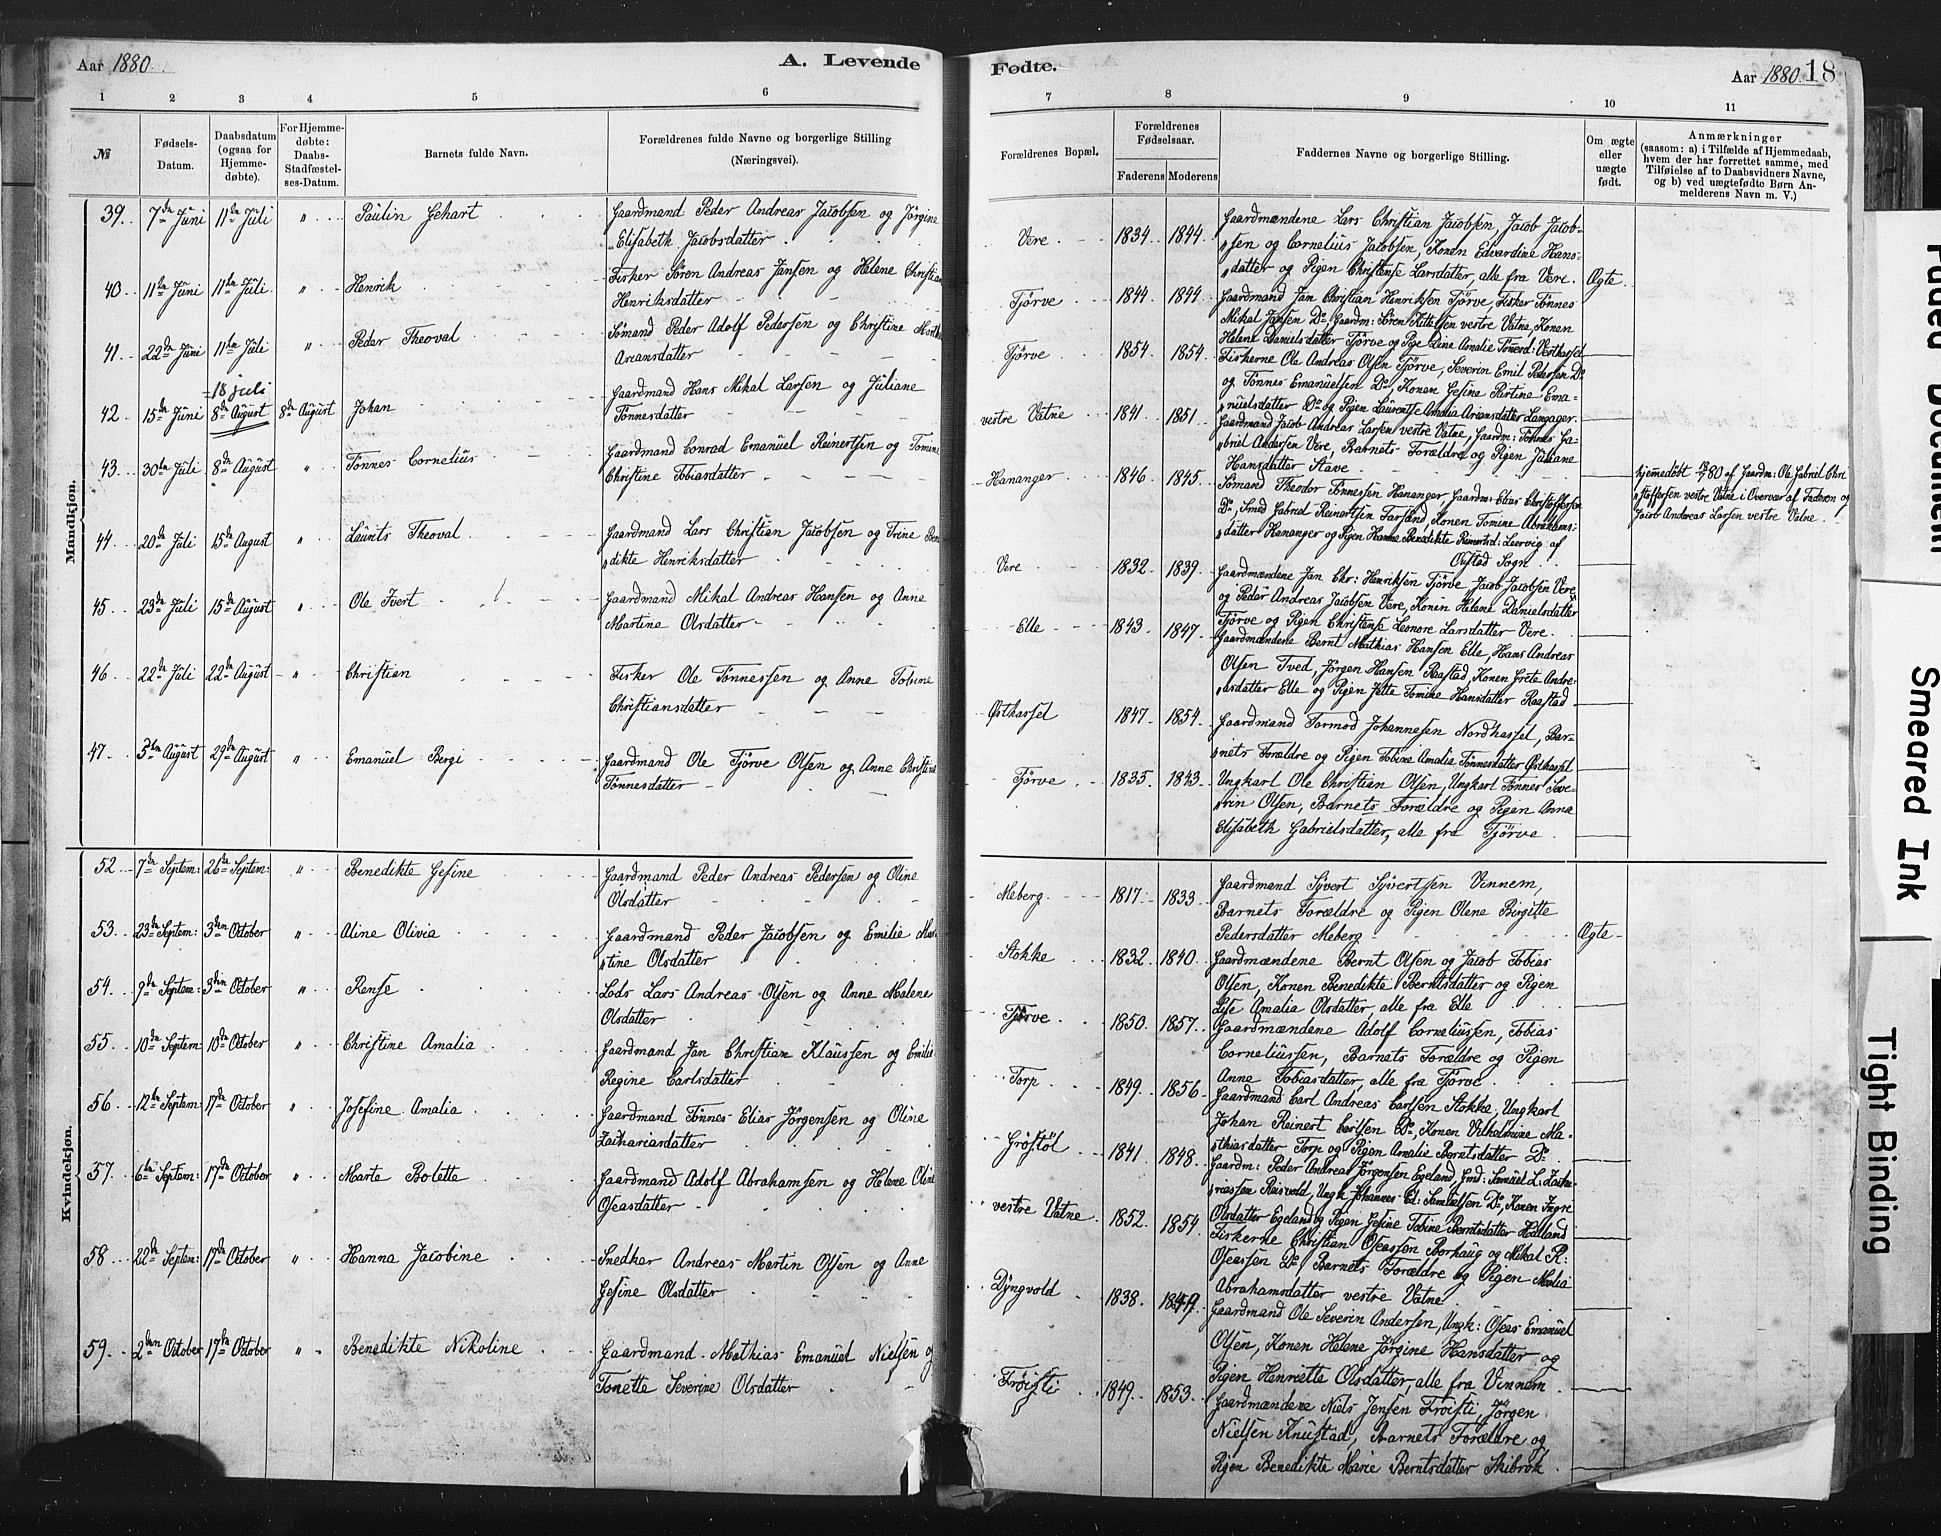 Aar 1880.
A. Levende
1 2 3 4 5 6
№
Fødsels-Datum.
Daabsdatum (ogsaa for Hjemmedøbte).
For Hjemmedøbte: Daabs-Stadfæstelses-Datum.
Barnets fulde Navn.
Forældrenes fulde Navne og borgerlige Stilling (Næringsvei).
Mandkjøn.
39. 7de Juni 11te Juli " Paulin Gehart Gaardmand Peder Andreas Jacobsen og Jørgine
Elisabeth Jacobsdatter
40 11te Juni 11te Juli " Henrik Fisker Sören Andreas Jansen og Helene Christian
Henriksdatter
41 22de Juni 11te Juli " Peder Theoval Sömand Peder Adolf Pedersen og Christine Marthe
Ariansdatter
18 juli
42 15de Juni 8de August 8de August Johan Gaardmand Hans Mikal Larsen og Juliane
Tönnesdatter
43 30te Juli 8de August " Tönnes Cornelius Gaardmand Conrad Emanuel Reinertsen og Tomine
Christine Tobiasdatter
44 20de Juli 15de August " Laurits Theoval Gaardmand Lars Christian Jacobsen og Trine Bene
dikte Henriksdatter
45 23de Juli 15de August " Ole Ivert Gaardmand Mikal Andreas Hansen og Anne
Martine Olsdatter
46 22de Juli 22de August " Christian Fisker Ole Tönnessen og Anne Tobine
Christiansdatter
47 5te August 29de August " Emanuel Bergi Gaardmand Ole Tjörve Olsen og Anne Christine
Tönnesdatter
Kvindekjøn.
52 7de Septem: 26de Septem: " Benedikte Gesine Gaardmand Peder Andreas Pedersen og Oline
Olsdatter
53 23de Septem: 3die October " Aline Olivia Gaardmand Peder Jacobsen og Emilie Mar
tine Olsdatter
54 9de Septem: 3die October " Rense Lods Lars Andreas Olsen og Anne Malene
Olsdatter
55 10de Septem: 10de October " Christine Amalia Gaardmand Jan Christian Klaussen og Emilie
Regine Carlsdatter
56 12te Septem: 17de October " Josefine Amalia Gaardmand Tönnes Elias Jörgensen og Oline
Zachariasdatter
57 6te Septem: 17de October " Marte Bolette Gaardmand Adolf Abrahamsen og Helene Oline
Oseasdatter
58 22de Septem: 17de October " Hanna Jacobine Snedker Andreas Martin Olsen og Anne
Gesine Olsdatter
59 2den October 17de October " Benedikte Nikoline Gaardmand Mathias Emanuel Nielsen og
Tonette Severine Olsdatter
Fødte.
Aar 1880. 18
7 8 9 10 11
Forældrenes Bopæl.
Forældrenes Fødselsaar.
Faderens Moderens
Faddernes Navne og borgerlige Stilling.
Om ægte eller uægte født.
Anmærkninger
(saasom: a) i Tilfælde af Hjemmedaab,
hvem der har forrettet samme, med
Tilføielse af to Daabsvidners Navne,
og b) ved uægtefødte Børn An-
melderens Navn m. V.)
Vere 1834 1844 Gaardmændene Lars Christian Jacobsen, Jacob Jacob-
sen og Cornelius Jacobsen, Konen Edvardine Hans-
datter og Pigen Christense Larsdatter, alle fra Vere. Ægte.
Tjörve 1844 1844 Gaardmand Jan Christian Henriksen Tjörve, Fisker Tönnes
Mikal Jansen Do, Gaardm: Sören Kittelsen vestre Vatne, Konen
Helene Danielsdatter Tjörve og Pige Line Amalie Tönesd: Vesthassel
Tjörve 1854 1854 Fiskerne Ole Andreas Olsen Tjörve, Severin Emil Pedersen Do
og Tönnes Emanuelsen Do, Konen Gesine Bertine Ema-
nuelsdatter Do og Pigen Laurentse Amalia Ariansdatter Langager.
vestre Vatne 1841 1851 Gaardmand Jacob Andreas Larsen vestre Vatne, Gaardm: Tönnes Ga-
briel Andersen Vere, Barnets Forældre og Pigen Juliane
Hansdatter Stave
Hjemmedøbt 18/7 80 af Gaardm: Ole Gabriel Chri
stoffersen vestre Vatne i Overvær af Faderen og
Jacob Andreas Larsen vestre Vatne.
Hananger 1846 1845 Sömand Theodor Tönnessen Hananger, Gaardm: Elias Christoffersen
Do, Smed Gabriel Reinertsen Farsund, Konen Tomine Abrahams-
datter Hananger og Pigen Hanne Benedikte Reinertsd: Leervig af
Oustad Sogn
Vere 1832 1839 Gaardmændene Jan Chr: Henriksen Tjörve, Jacob Jacobsen Vere
og Peder Andreas Jacobsen Vere, Konen Helene Danielsdatter
Tjörve og Pigen Christense Leonore Larsdatter Vere.
Elle 1843 1847 Gaardmændene Bernt Mathias Hansen Elle, Hans Andreas
Olsen Tved, Jörgen Hansen Raastad, Konen Grete Andre-
asdatter Elle og Pigen Jette Tomine Hansdatter Raastad
Østhassel 1847 1854 Gaardmand Tormod Johannesen Nordhassel, Bar-
nets Forældre og Pigen Tobine Amalia Tönnesdatter Østhassel
Tjörve 1835 1843 Ungkarl Ole Christian Olsen, Ungkarl Tönnes Seve-
rin Olsen, Barnets Forældre og Pigen Anna
Elisabeth Gabrielsdatter, alle fra Tjörve
Meberg 1817 1833 Gaardmand Syvert Syvertsen Vinnem,
Barnets Forældre og Pigen Olene Birgitte
Pedersdatter Meberg Ægte
Stokke 1832 1840 Gaardmændene Bernt Olsen og Jacob Tobias
Olsen, Konen Benedikte Berntsdatter og Pigen
Lise Amalia Olsdatter, alle fra Elle
Tjörve 1850 1857 Gaardmændene Adolf Corneliussen, Tobias
Corneliussen, Barnets Forældre og Pigen
Anne Tobiasdatter, alle fra Tjörve
Torp 1849 1856 Gaardmand Carl Andreas Carlsen Stokke, Ungkarl
Johan Reinert Carlsen Do, Konen Vilhelmine Ma-
thiasdatter Torp og Pigen Amalie Berntsdatter Do
Gröstöl 1841 1848 Gaardm: Peder Andreas Jörgensen Egeland, Gmd: Samuel L. Zacha-
riassen Reisvold, Ungk. Johannes Ed: Samuelsen Do, Konen Ingre
Olsdatter Egeland og Pigen Gesine Tobine Berntsdatter Halland
vestre Vatne 1852 1854 Fiskerne Christian Oseassen Borhaug og Mikal R:
Oseassen Do Barnets Forældre og Pigen Malia
Abrahamsdatter vestre Vatne
Dyngvold 1838 1849 Gaardmand Ole Severin Andersen, Ungk: Oseas Emanuel
Olsen, Konen Helene Jörgine Hansdatter og
Pigen Henriette Olsdatter, alle fra Vinnem
Fröisti 1849 1853 Gaardmændene Niels Jensen Fröisti, Jörgen
Nielsen Knustad, Barnets Forældre og
Pigen Benedikte Marie Berntsdatter Skibrok
Faded Document
Smeared Ink
Tight Binding